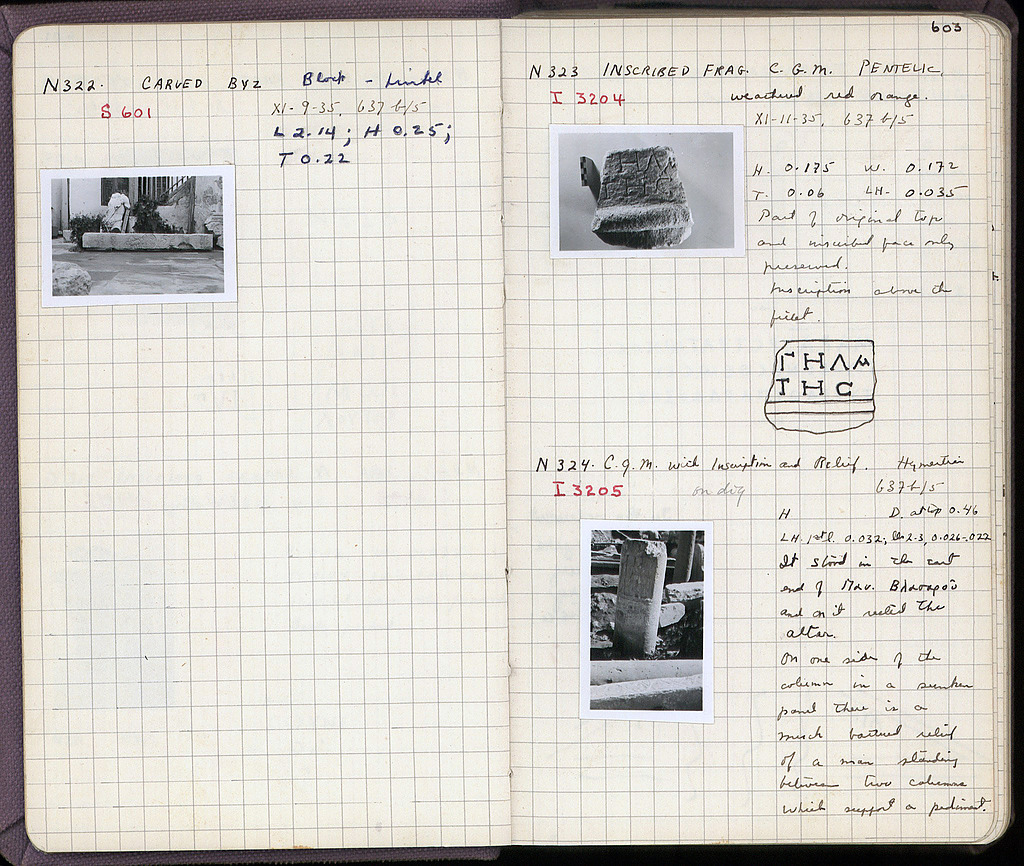 N322. CARVED BYZ Block - Lintel
S 601
XI-9-35, 637 b/5
L 2.14; H 0.25;
T 0.22
603
N 323 INSCRIBED FRAG. C. G. M. PENTELIC,
I 3204
weathered red orange.
XI-11-35, 637 b/5
H. 0.175 W. 0.172
T. 0.06 LH. 0.035
Part of original top
and inscribed face only
preserved.
Inscription above the
fillet.
ΓΗΛΜ
ΤΗC
N 324. C. G. M. with Inscription and Relief. Hymettian
I 3205
on dig
637 b/5
H D. at top 0.46
LH. 1st l. 0.032; lls 2-3, 0.026-.022
It stood in the east
end of Παν. Βλασαρού
and on it rested the
altar.
On one side of the
column in a sunken
panel there is a
much battered relief
of a man standing
between two columns
which support a pediment.